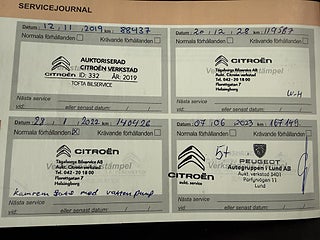 SERVICEJOURNAL
Datum: 12, 11, 2019 km: 88437
Normala förhållanden Krävande förhållanden
AUKTORISERAD
CITROËN VERKSTAD
CITROËN ID: 332 ÅR: 2019
TOFTA BILSERVICE
Nästa service
vid: eller senast datum:
Datum: 20, 12, 28 km: 119587
Normala förhållanden Krävande förhållanden
CITROËN
Tågaborgs Bilservice AB
Aukt. Citroën verkstad
Tel. 042 - 20 18 00
Florettgatan 7
Helsingborg
Nästa service
vid: eller senast datum:
Datum: 2022 km: 140426
Normala förhållanden Krävande förhållanden
CITROËN
Tågaborgs Bilservice AB
Aukt. Citroën verkstad
Tel. 042 - 20 18 00
Florettgatan 7
Helsingborg
Kamrem byte med vatten pump
Nästa service
vid: eller senast datum:
Datum: 07, 06, 2023 km: 167149
Normala förhållanden Krävande förhållanden
CITROËN
aukt. service
PEUGEOT
Autogruppen i Lund AB
Aukt. verkstad
Lund
Nästa service
vid: eller senast datum: